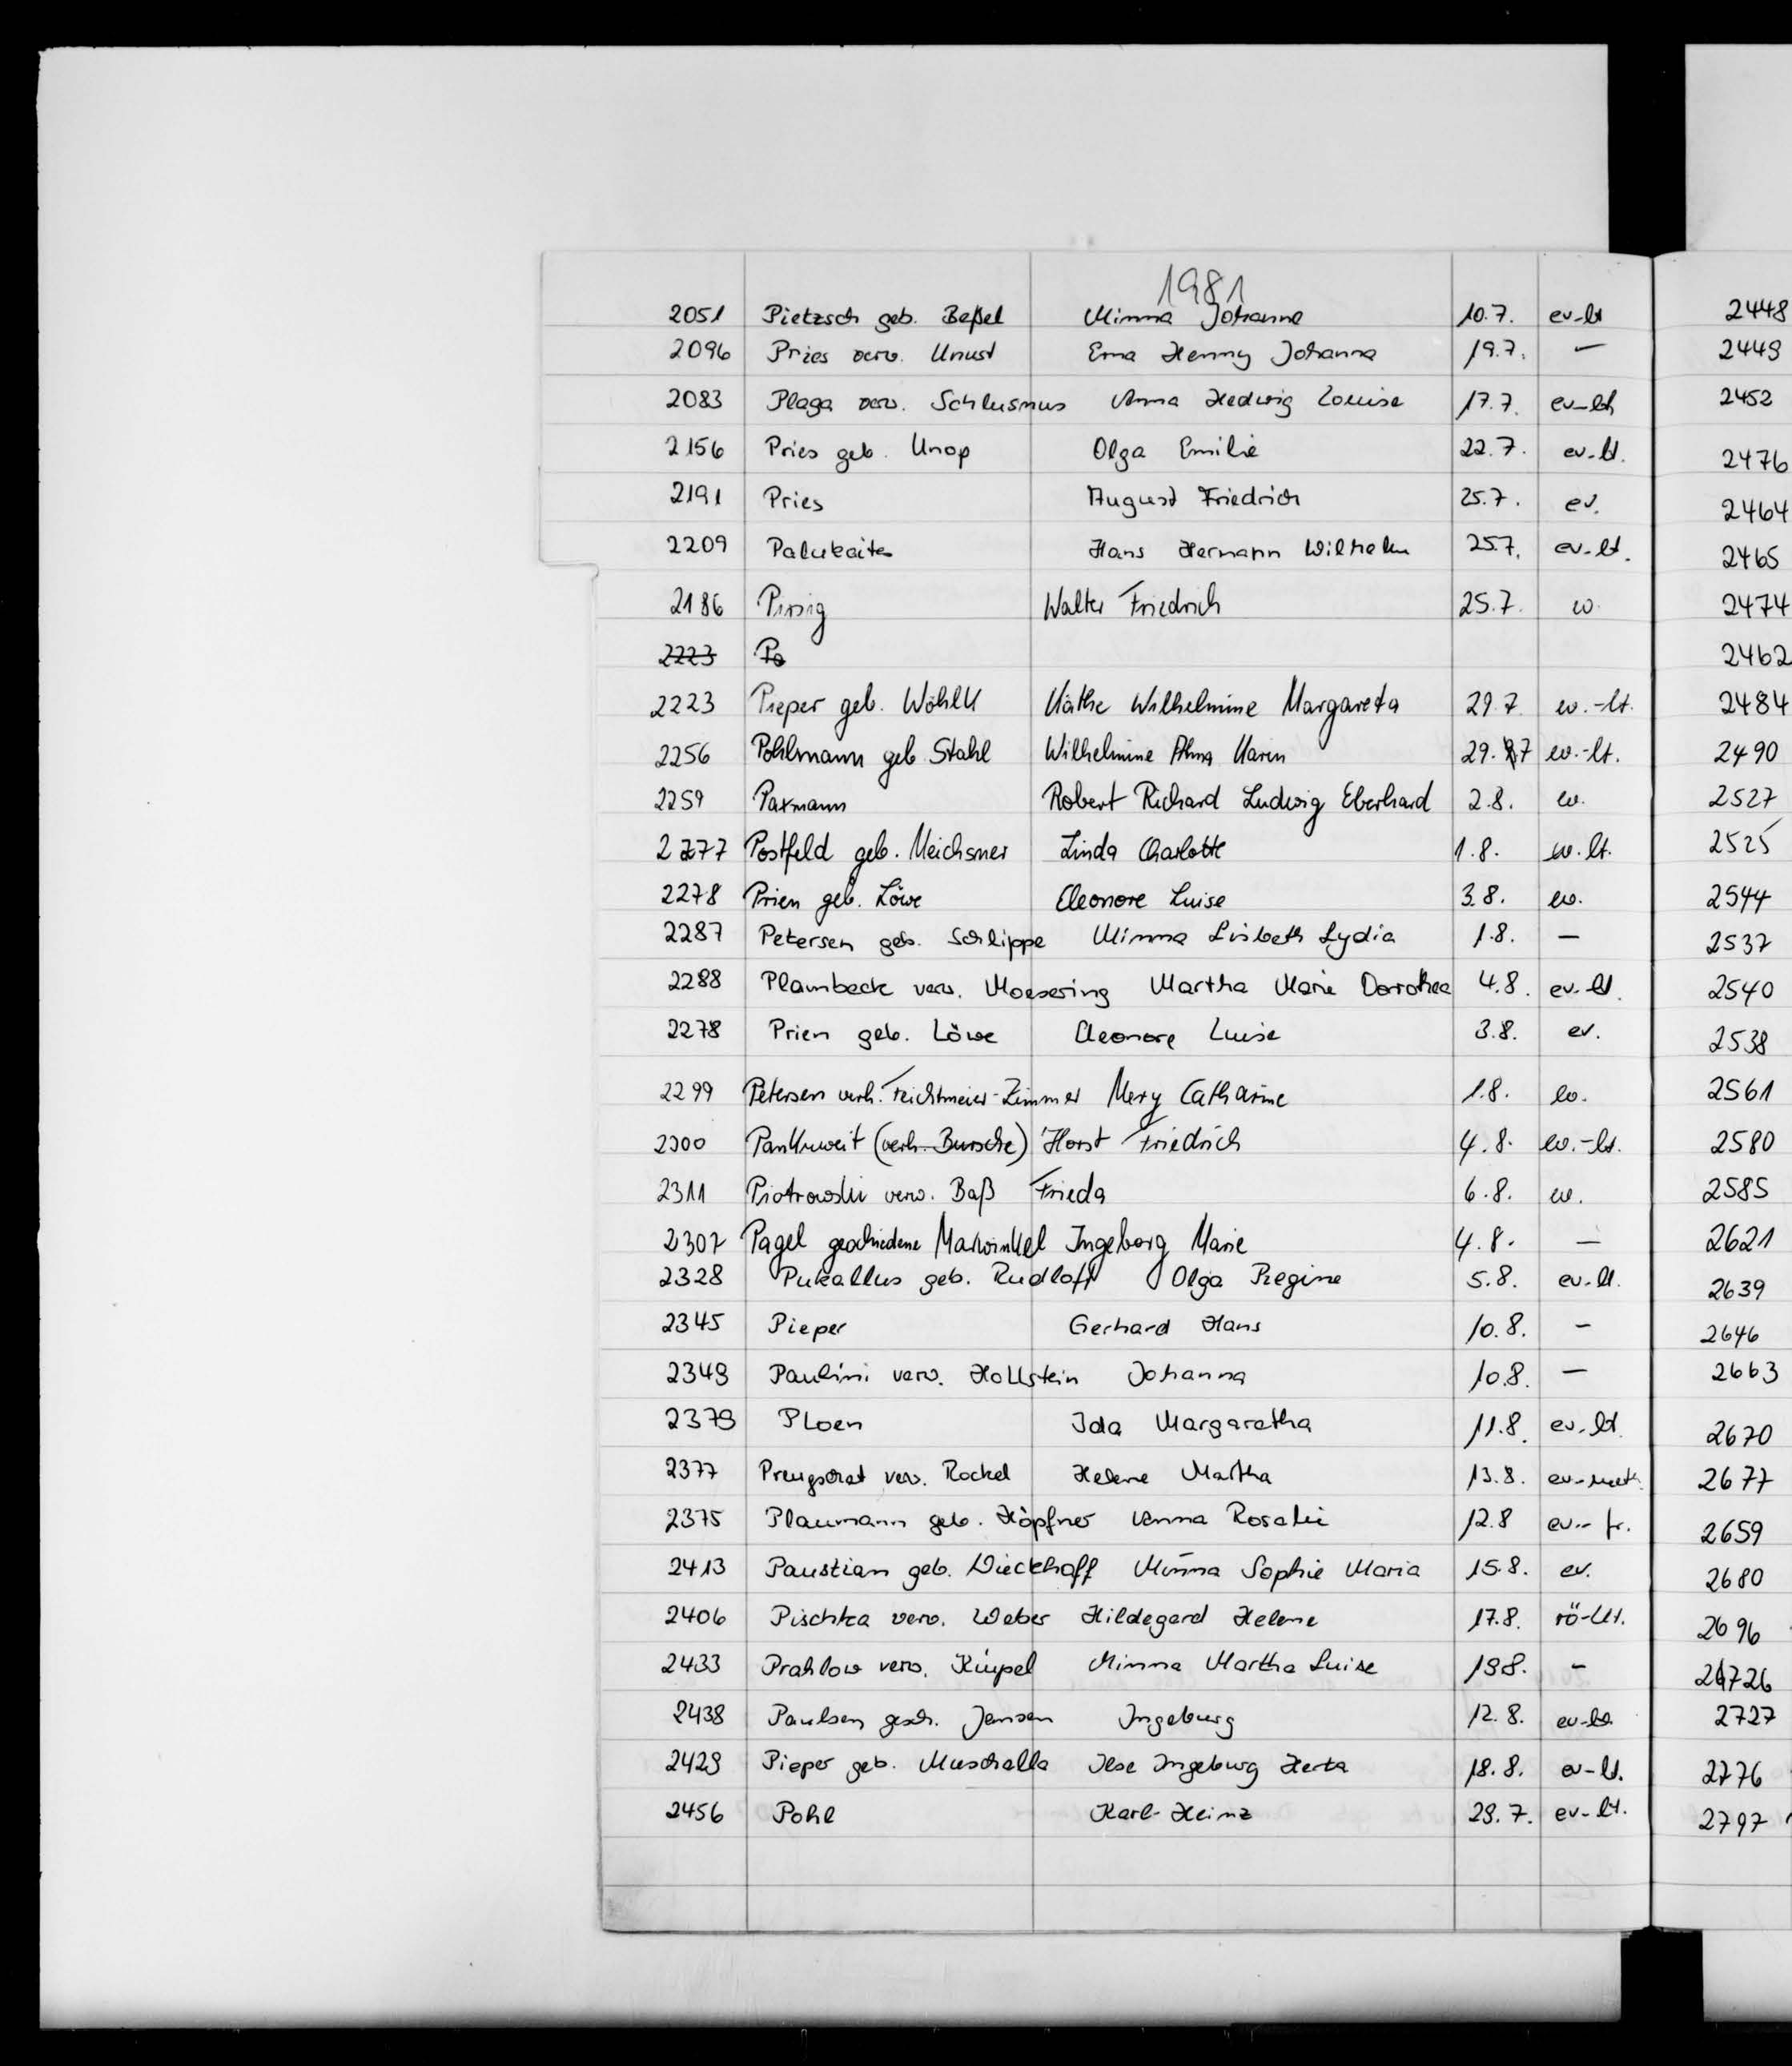 1981
2051 Pietzsch geb. Beßel Minna Johanna 10.7. ev-lt 2448
2096 Pries verw. Unust Erna Henny Johanna 19.7. — 2449
2083 Plaga verw. Schlusnus Anna Hedwig Louise 17.7. ev-lt 2452
2156 Pries geb. Unop Olga Emilie 22.7. ev-lt. 2476
2191 Pries August Friedrich 25.7. ev. 2464
2209 Palukaites Hans Hermann Wilhelm 25.7. ev-lt. 2465
2186 Pirsig Walter Friedrich 25.7. ev. 2474
2223 Pa 2462
2223 Pieper geb. Wöhlk Käthe Wilhelmine Margareta 29.7. ev.-lt. 2484
2256 Pohlmann geb. Stahl Wilhelmine Alma Karin 29.7 ev.-lt. 2490
2259 Paxmann Robert Richard Ludwig Eberhard 2.8. ev. 2527
2277 Postfeld geb. Meichsner Linda Charlotte 1.8. ev.lt. 2525
2278 Prien geb. Löwe Eleonore Luise 3.8. ev. 2544
2287 Petersen geb. Schlippe Minna Lisbeth Lydia 1.8. — 2537
2288 Plambeck verw. Moesering Martha Marie Dorothea 4.8. ev.-lt. 2540
2278 Prien geb. Löwe Eleonore Luise 3.8. ev. 2538
2299 Petersen verh. Feichtmeier-Zimmer Mery Catharine 1.8. ev. 2561
2300 Pankuweit (verh. Bursche) Horst Friedrich 4.8. ev.-lt. 2580
2311 Piotrowski verw. Baß Frieda 6.8. ev. 2585
2307 Pagel geschiedene Marwinkel Ingeborg Marie 4.8. — 2621
2328 Pukallus geb. Rudloff Olga Regine 5.8. ev.-lt. 2639
2345 Pieper Gerhard Hans 10.8. – 2646
2349 Paulini verw. Hollstein Johanna 10.8. — 2663
2379 Ploen Ida Margaretha 11.8. ev.-lt. 2670
2377 verw. Rockel Helene Martha 13.8. 2677
2375 Plaumann geb. Höpfner Anna Rosalie 12.8 ev.-fr. 2659
2413 Paustian geb. Dieckhoff Minna Sophie Maria 15.8. ev. 2680
2406 Pischka verw. Weber Hildegard Helene 17.8. 2696
2433 Prahlow verw. Küpel Minna Martha Luise 19.8. – 2726
2438 Paulsen gesch. Jensen Ingeburg 12.8. ev-lt. 2727
2429 Pieper geb. Muschalla Ilse Ingeburg Herta 18.8. ev-lt. 2776
2456 Pohl Karl-Heinz 29.7. ev-lt. 2797